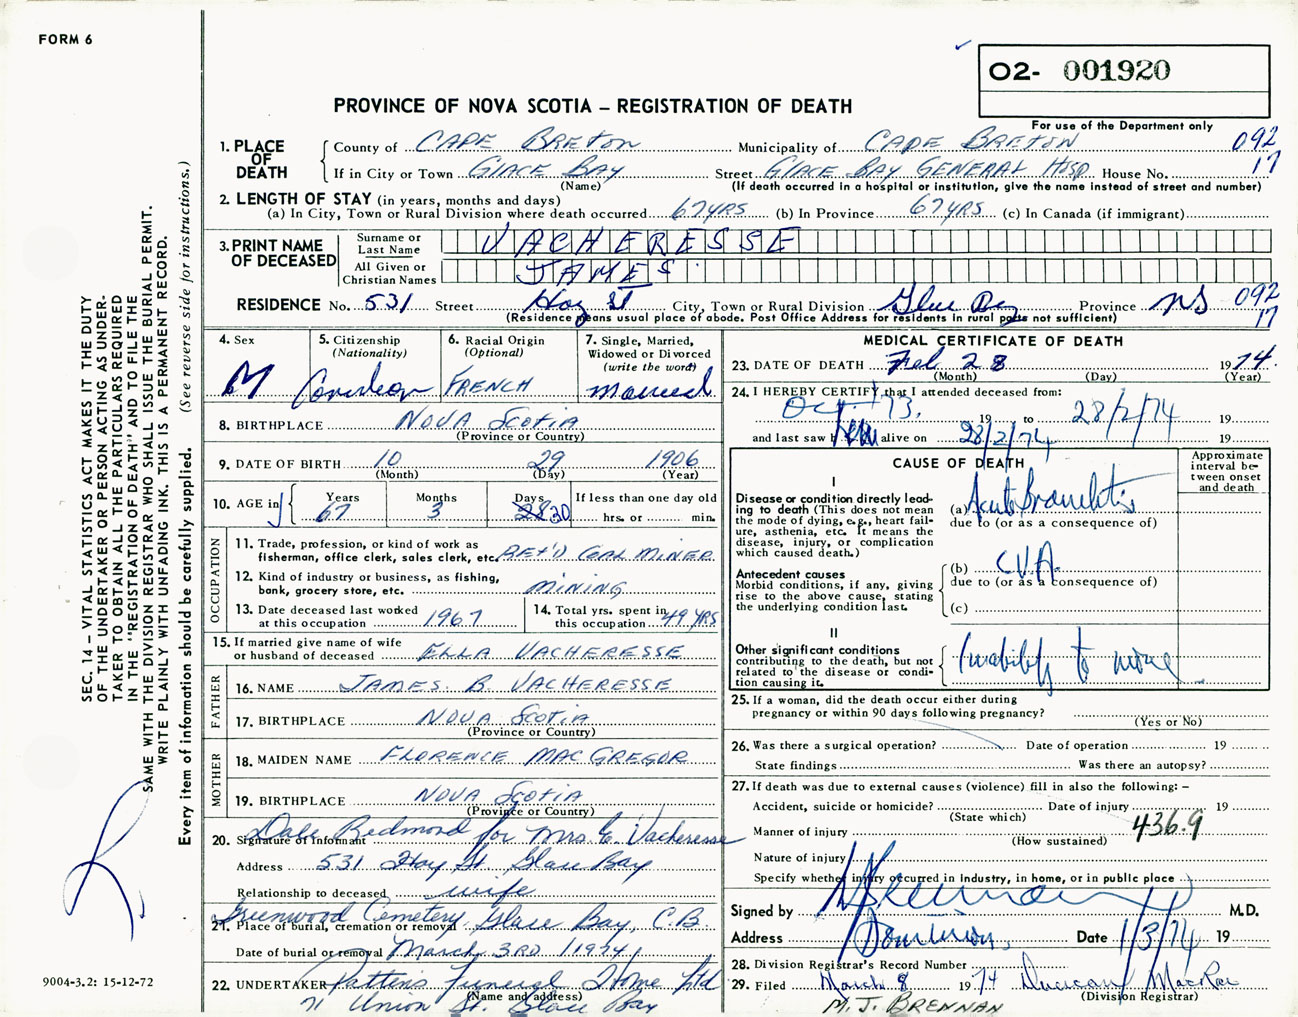 FORM 6
O2- 001920
PROVINCE OF NOVA SCOTIA – REGISTRATION OF DEATH
For use of the Department only
1. PLACE OF DEATH
County of CAPE BRETON Municipality of CAPE BRETON 092
If in City or Town GLACE BAY Street GLACE BAY GENERAL HOSP House No. 17
(Name) (If death occurred in a hospital or institution, give the name instead of street and number)
2. LENGTH OF STAY (in years, months and days)
(a) In City, Town or Rural Division where death occurred 67 YRS (b) In Province 67 YRS (c) In Canada (if immigrant)
3. PRINT NAME OF DECEASED
Surname or Last Name VACHERESSE
All Given or Christian Names JAMES
RESIDENCE No. 531 Street Hoy St City, Town or Rural Division Glace Bay Province NS 092
(Residence means usual place of abode. Post Office Address for residents in rural parts not sufficient) 17
4. Sex
M
5. Citizenship
(Nationality)
Canadian
6. Racial Origin
(Optional)
FRENCH
7. Single, Married,
Widowed or Divorced
(write the word)
married
8. BIRTHPLACE NOVA SCOTIA
(Province or Country)
9. DATE OF BIRTH 10 29 1906
(Month) (Day) (Year)
10. AGE in
Years Months Days If less than one day old
67 3 30 hrs. or min.
OCCUPATION
11. Trade, profession, or kind of work as
fisherman, office clerk, sales clerk, etc. RET'D COAL MINER
12. Kind of industry or business, as fishing,
bank, grocery store, etc. MINING
13. Date deceased last worked
at this occupation 1967
14. Total yrs. spent in
this occupation 49 YRS
15. If married give name of wife
or husband of deceased ELLA VACHERESSE
FATHER
16. NAME JAMES B. VACHERESSE
17. BIRTHPLACE NOVA SCOTIA
(Province or Country)
MOTHER
18. MAIDEN NAME FLORENCE MACGREGOR
19. BIRTHPLACE NOVA SCOTIA
(Province or Country)
20. Signature of Informant Dale Redmond for Mrs. E. Vacheresse
Address 531 Hoy St. Glace Bay
Relationship to deceased wife
21. Place of burial, cremation or removal Greenwood Cemetery, Glace Bay, C.B
Date of burial or removal March 3RD 1974
22. UNDERTAKER Pattens Funeral Home Ltd
(Name and address)
71 Union St. Glace Bay
MEDICAL CERTIFICATE OF DEATH
23. DATE OF DEATH Feb 28 1974.
(Month) (Day) (Year)
24. I HEREBY CERTIFY that I attended deceased from:
Oct 73. 19 to 28/2/74 19
and last saw him alive on 28/2/74 19
CAUSE OF DEATH
Approximate
interval be-
tween onset
and death
I
Disease or condition directly lead-
ing to death (This does not
mean the mode of dying, e.g., heart fail-
ure, asthenia, etc. It means the
disease, injury, or complication
which caused death.)
(a) Acute Bronchitis
due to (or as a consequence of)
Antecedent causes
Morbid conditions, if any, giving
rise to the above cause, stating
the underlying condition last.
(b) CVA
due to (or as a consequence of)
(c)
II
Other significant conditions
contributing to the death, but not
related to the disease or condi-
tion causing it.
Inability to move
25. If a woman, did the death occur either during
pregnancy or within 90 days following pregnancy?
(Yes or No)
26. Was there a surgical operation? Date of operation 19
State findings Was there an autopsy?
27. If death was due to external causes (violence) fill in also the following: –
Accident, suicide or homicide? Date of injury 19
(State which)
Manner of injury 436.9
(How sustained)
Nature of injury
Specify whether injury occurred in Industry, in home, or in public place
Signed by M.D.
Address Dominion, Date 1/3/74 19
28. Division Registrar's Record Number
29. Filed March 8 1974 Duncan MacRae
(Division Registrar)
M. J. BRENNAN
SEC. 14 – VITAL STATISTICS ACT MAKES IT THE DUTY
OF THE UNDERTAKER OR PERSON ACTING AS UNDER-
TAKER TO OBTAIN ALL THE PARTICULARS REQUIRED
IN THE "REGISTRATION OF DEATH" AND TO FILE THE
SAME WITH THE DIVISION REGISTRAR WHO SHALL ISSUE THE BURIAL PERMIT.
WRITE PLAINLY WITH UNFADING INK. THIS IS A PERMANENT RECORD.
Every item of information should be carefully supplied. (See reverse side for instructions.)
9004-3.2: 15-12-72